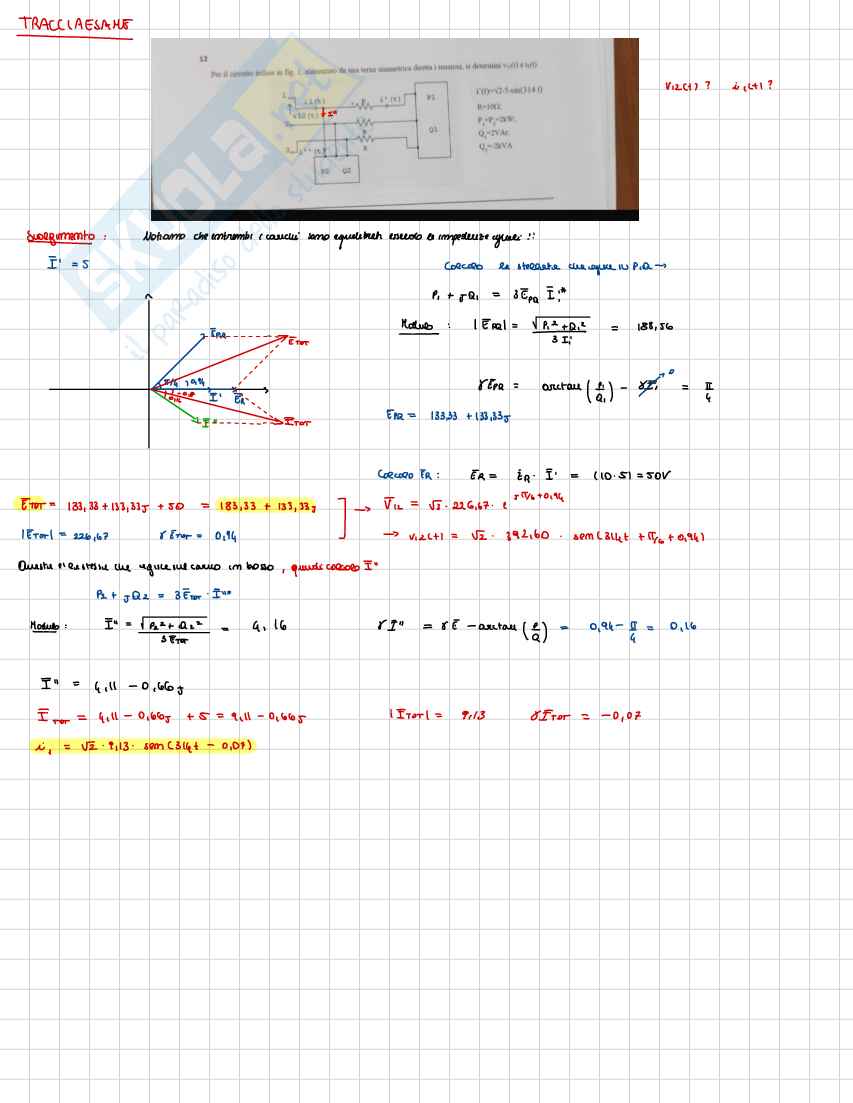 TRACCIA ESAME
12
Per il circuito trifase in fig. 1, alimentato da una terna simmetrica diretta i tensioni, si determini v₁₂(t) e i₁(t)
i'(t)=√2·5·sin(314·t)
R=10Ω;
P₁=P₂=2kW;
Q₁=2VAr;
Q₂=2kVA
P1
Q1
P2 Q2
I"
R
1
2
3
V12(t) ? i1(t) ?
Svolgimento : Notiamo che entrambi i carichi sono equilibrati essendo le impedenze uguali !!
I' = 5
Calcolo la stellata che agisce su P,Q →
P₁ + jQ₁ = 3 E̅PQ I̅'*
Modulo : |E̅PQ| = √P₁² + Q₁² / 3 I' = 188,56
γEPQ = arctan (P₁/Q₁) - γI' = π/4
EPQ = 133,33 + 133,33j
E̅PQ
E̅TOT
I'
E̅R
I"
I̅TOT
Calcolo E̅R : E̅R = ż̅R · I̅' = (10·5) = 50V
E̅TOT = 133,33+133,33j + 50 = 183,33 + 133,33j → V̅12 = √3 · 226,67 · e^jπ/6+0,94
|ETOT| = 226,67 γE̅TOT = 0,94 → v12(t) = √2 · 392,60 · sen(314t + π/6 + 0,94)
Questa è la stessa che agisce sul carico in basso, quindi calcolo I̅"
P2 + jQ2 = 3E̅TOT · I̅"*
Modulo : I̅" = √P₂² + Q₂² / 3E̅TOT = 4,16 γI" = γE̅ - arctan (P/Q) = 0,94 - π/4 = 0,16
I̅" = 4,11 - 0,66j
I̅TOT = 4,11 - 0,66j + 5 = 9,11 - 0,66j |I̅TOT| = 9,13 γI̅TOT = -0,07
i₁ = √2 · 9,13 · sen(314t - 0,07)